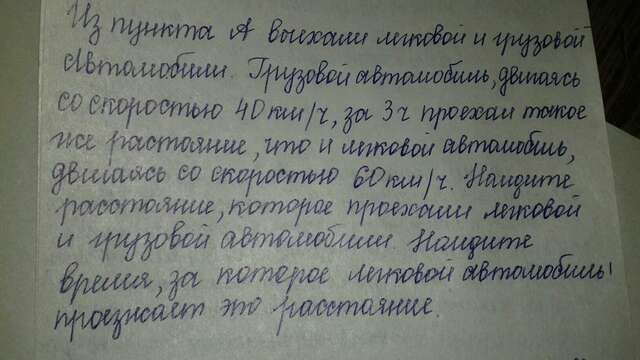 Из пункта А выехали легковой и грузовой
автомобили. Грузовой автомобиль, двигаясь
со скоростью 40 км/ч, за 3 ч проехал такое
же растояние, что и легковой автомобиль,
двигаясь со скоростью 60 км/ч. Найдите
расстояние, которое проехали легковой
и грузовой автомобили. Найдите
время, за которое легковой автомобиль
проезжает это расстояние.